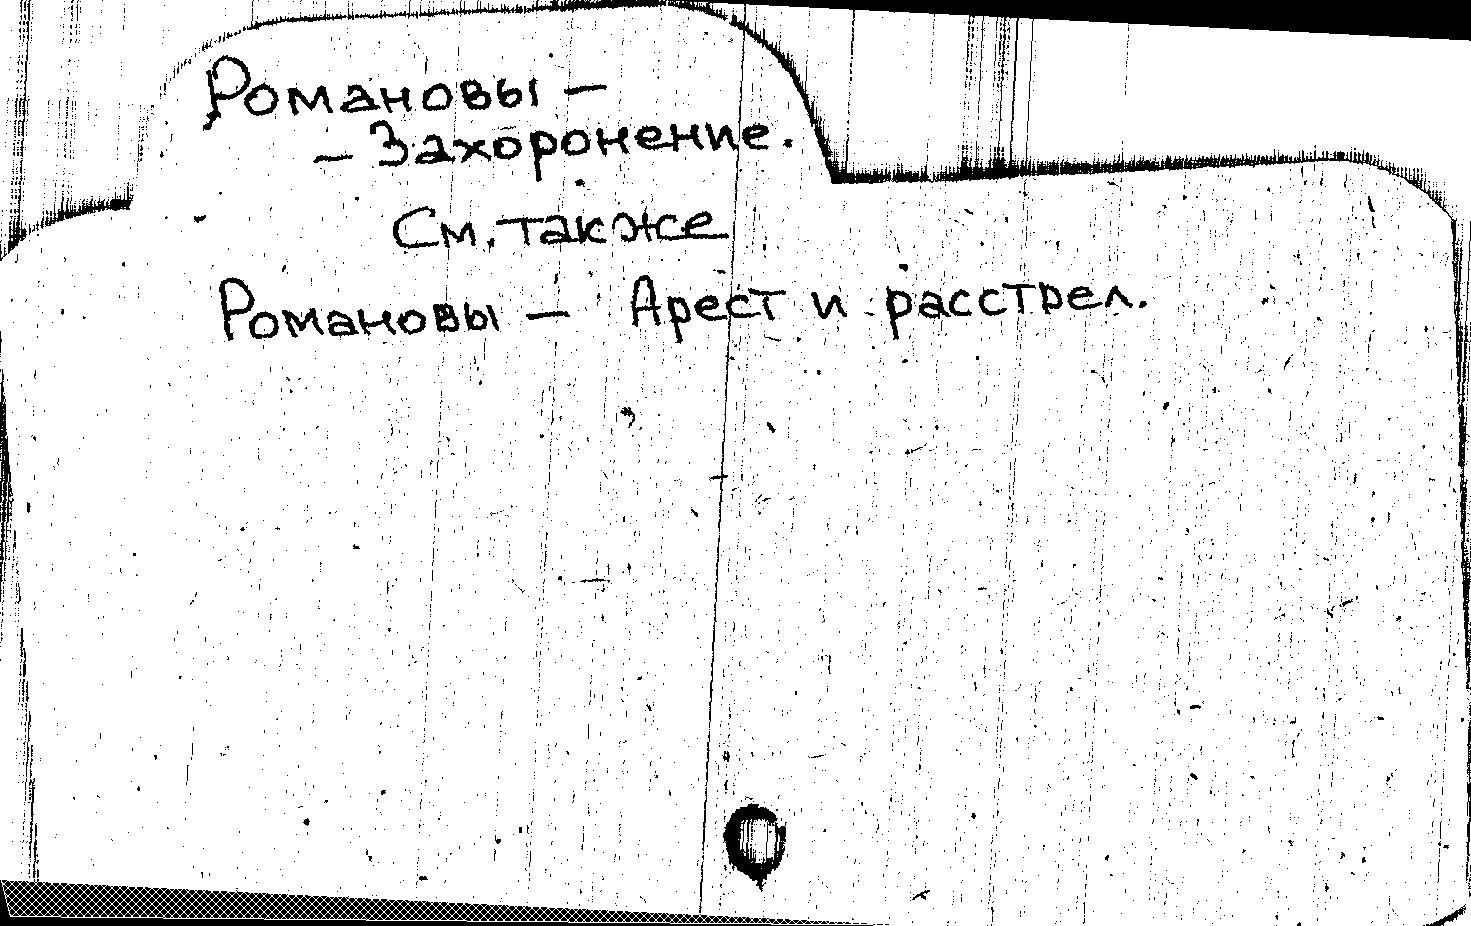 Романовы –
– Захоронение.
См. также
Романовы – Арест и расстрел.